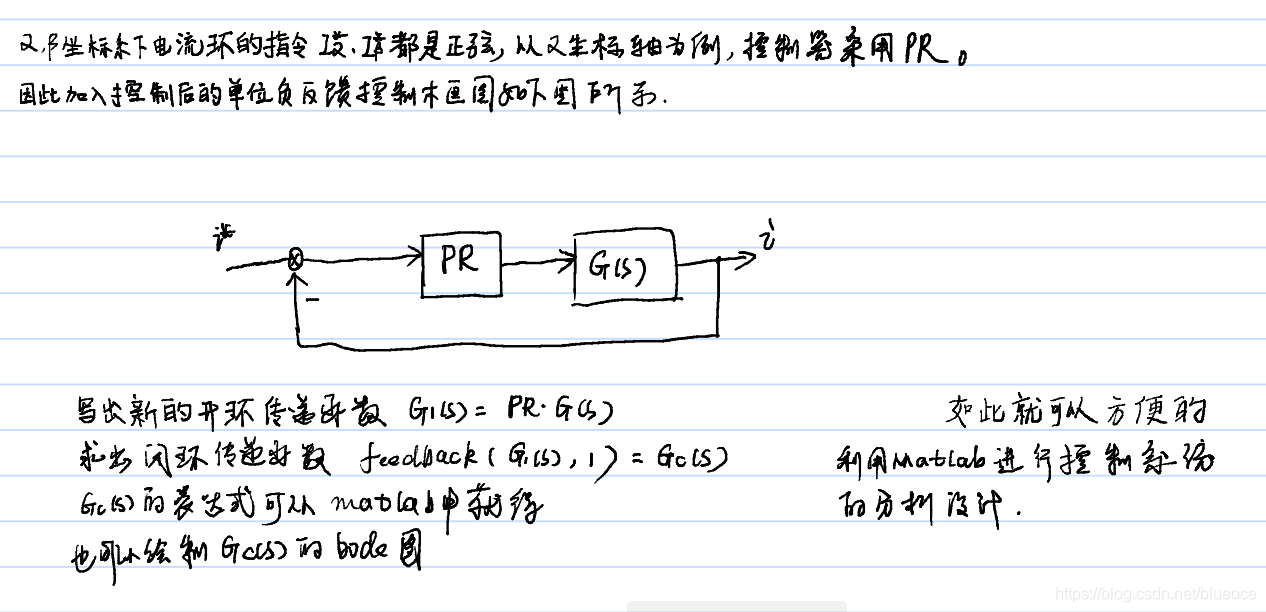 α,β坐标系下电流环的指令 iα*、iβ*都是正弦，从α坐标轴为例，控制器采用PR。
因此加入控制后的单位负反馈控制框图如下图所示.
i*
PR
G(s)
i
-
写出新的开环传递函数 G1(s)= PR·G(s)
求出闭环传递函数 feedback(G1(s),1)=Gc(s)
Gc(s)的表达式可以 matlab中获得
也可以绘制Gc(s)的bode图
如此就可以方便的
利用Matlab进行控制系统
的分析设计.
https://blog.csdn.net/blueoce